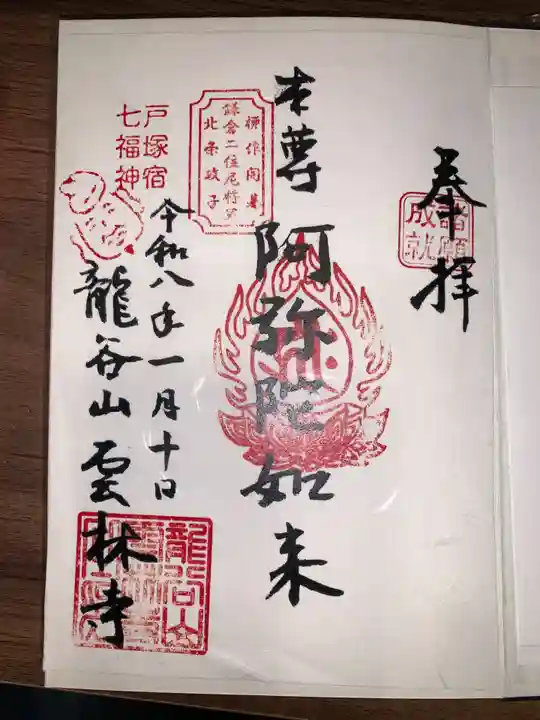 奉拝
諸願
成就
本尊 阿弥陀如来
鎌倉二位尼将軍
北条政子
戸塚宿
七福神
令和八年一月十日
龍谷山雲林寺